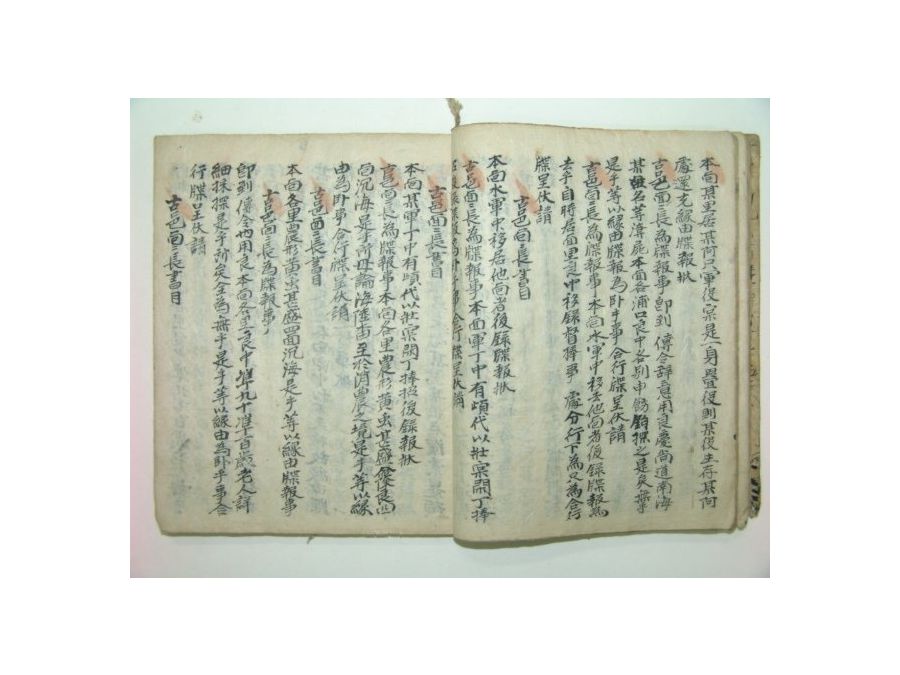 本面某里居某阿只軍役案是一身疊役則某役生存某阿
處還充緣由牒報狀
古邑面面長爲牒報事卽到 傳令辭意用良慶尙道南海
某某名等潯尾本面各浦口良中各別申飭
是乎等以緣由牒報爲臥乎事合行牒呈伏請
古邑面面長爲牒報事本面水軍中移去他面者後錄牒報爲
去乎自時居面里良中移錄督捧事 處分行下爲只爲合行
牒呈伏請
古邑面面長書目
本面水軍中移居他面者後錄牒報狀
古邑面面長爲牒報事本面軍丁中有頉代以壯案閑丁捧
招後錄牒報爲臥乎事合行牒呈伏請
古邑面面長書目
本面某軍丁中有頉代以壯案閑丁捧招後錄報狀
古邑面面長爲牒報事本面各里農形黃虫甚盛
面沉海是乎所毋論海陸畓至於消農之境是乎等以緣
由爲臥事合行牒呈伏請
古邑面面長書目
本面各里農形黃虫甚盛四面沉海是乎等以緣由牒報事
古邑面面長爲牒報事
卽到傳令也用良本面各里良中准九十准百歲老人詳
細採探是乎所定金爲無乎是乎等以緣由爲臥乎事合
行牒呈伏請
古邑面面長書目